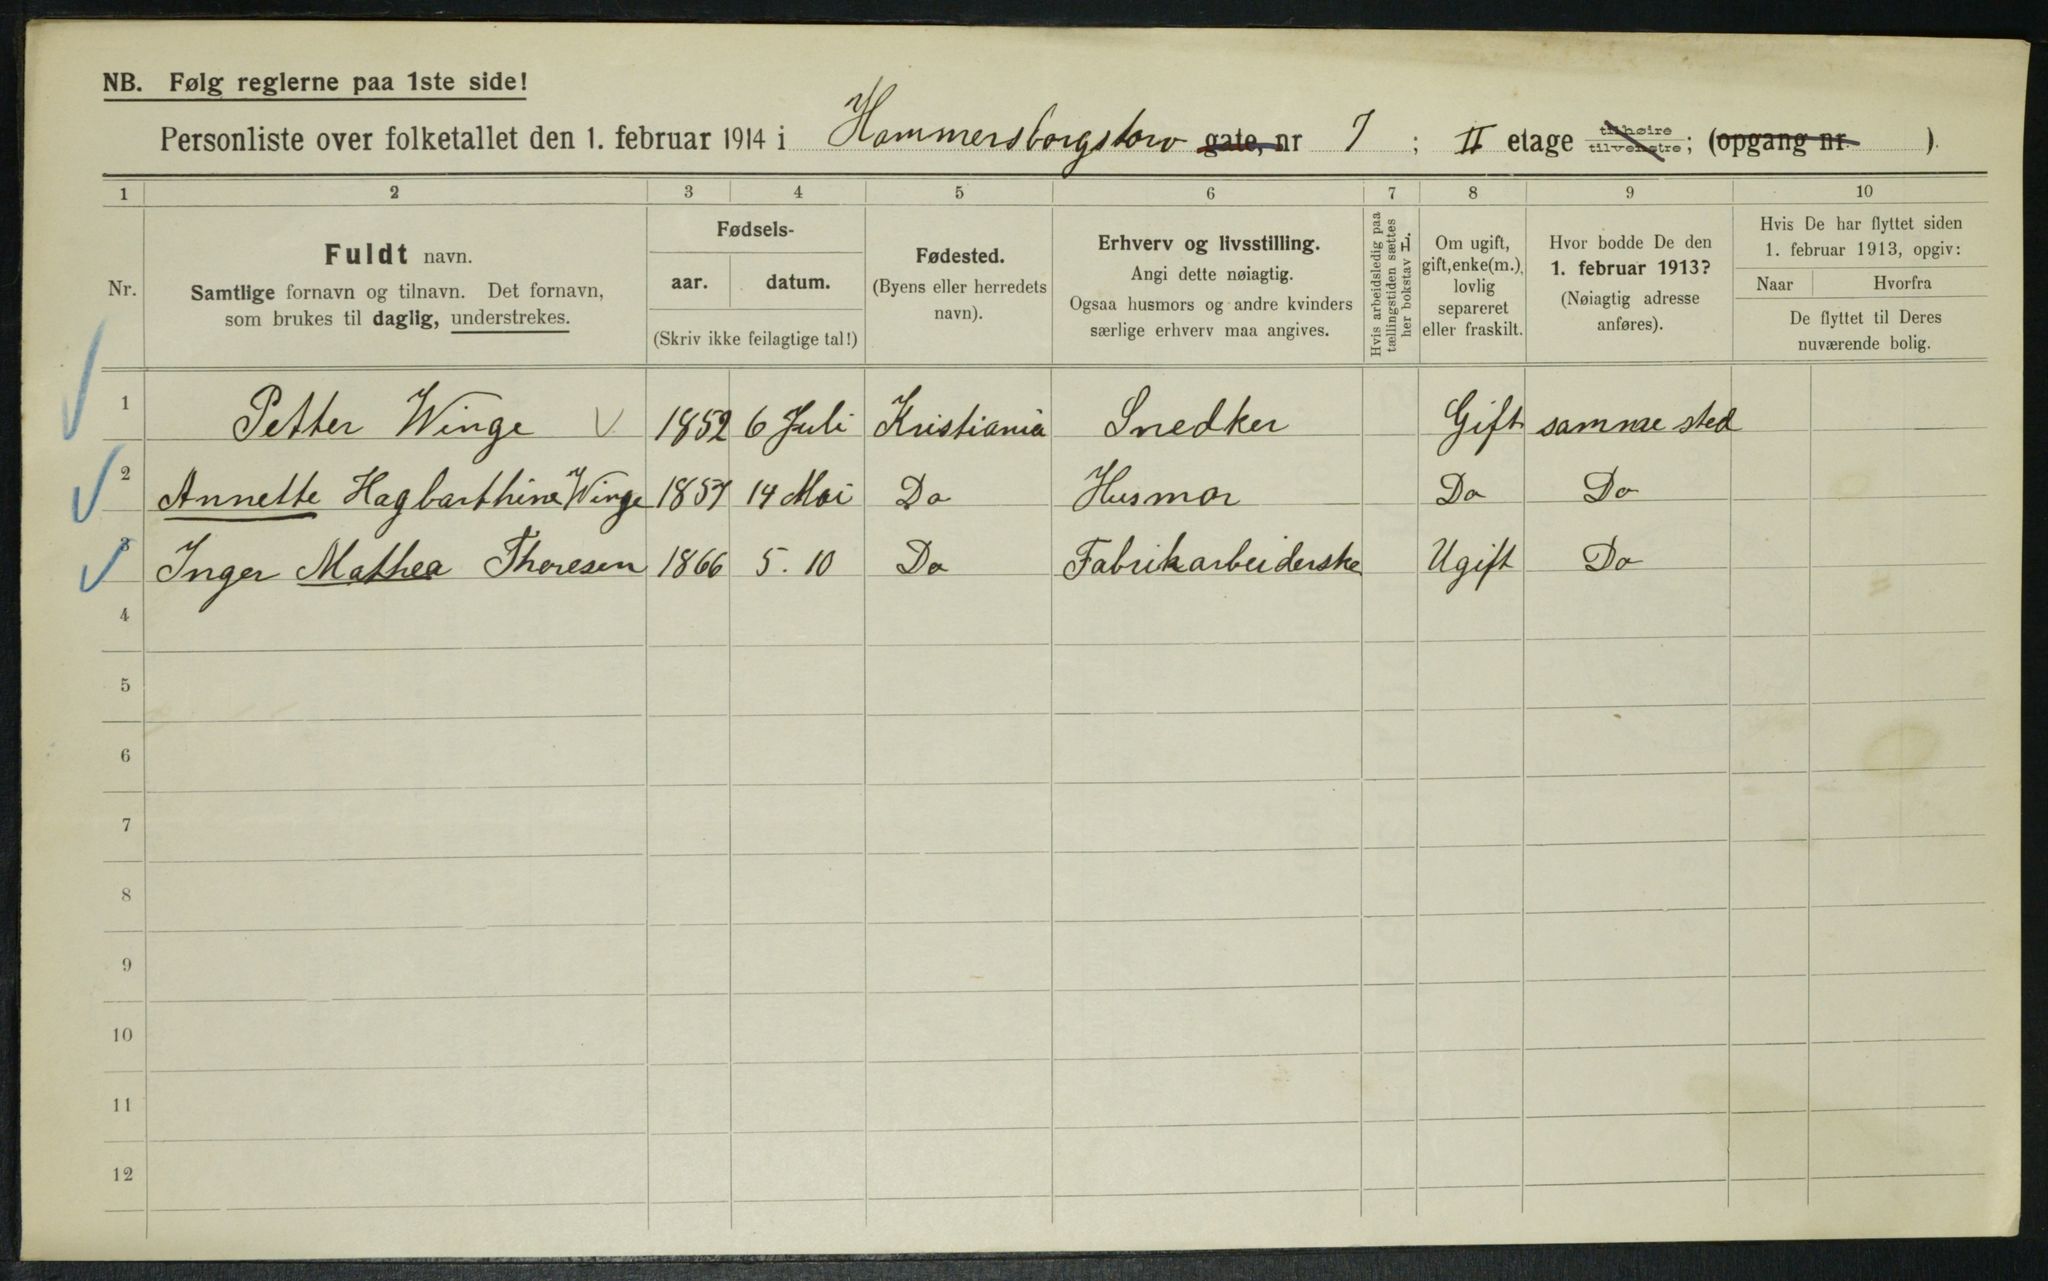 NB. Følg reglerne paa 1ste side!
Personliste over folketallet den 1. februar 1914 i Hammersborgstorv gate, nr 7 ; II etage tilhøire tilvenstre ; (opgang nr. )
1 2 3 4 5 6 7 8 9 10
Nr.
Fuldt navn.
Samtlige fornavn og tilnavn. Det fornavn,
som brukes til daglig, understrekes.
Fødsels-
aar. datum.
(Skriv ikke feilagtige tal!)
Fødested.
(Byens eller herredets
navn).
Erhverv og livsstilling.
Angi dette nøiagtig.
Ogsaa husmors og andre kvinders
særlige erhverv maa angives.
Hvis arbeidsledig paa
tællingstiden sættes
her bokstav L.
Om ugift,
gift, enke(m.),
lovlig
separeret
eller fraskilt.
Hvor bodde De den
1. februar 1913?
(Nøiagtig adresse
anføres).
Hvis De har flyttet siden
1. februar 1913, opgiv:
Naar Hvorfra
De flyttet til Deres
nuværende bolig.
1 Petter Winge 1852 6 Juli Kristiania Snedker Gift samme sted
2 Annette Hagbarthine Winge 1857 14 Mai Do Husmor Do Do
3 Inger Mathea Thoresen 1866 5. 10 Do Fabrikarbeiderske Ugift Do
4
5
6
7
8
9
10
11
12